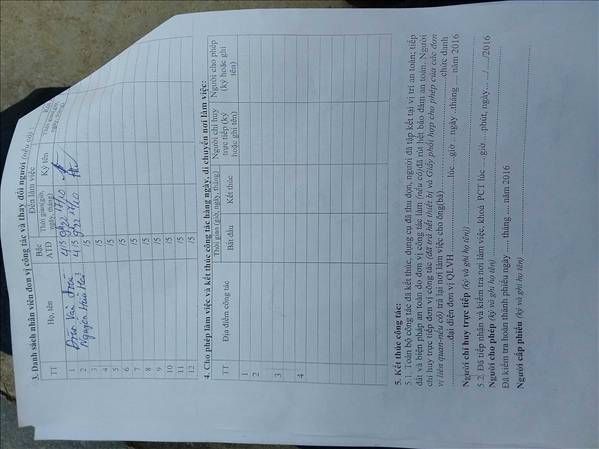 3. Danh sách nhân viên đơn vị công tác và thay đổi người (nếu có) :
TT Họ, tên Bậc ATD Đến làm việc
Thời gian (giờ, ngày, tháng) Ký tên
1 Văn 4/5 9h22 27/10
2 Nguyễn Hữu 4/5 9h22 27/10
3 /5
4 /5
5 /5
6 /5
7 /5
8 /5
9 /5
10 /5
11 /5
12 /5
4. Cho phép làm việc và kết thúc công tác hàng ngày, di chuyển nơi làm việc:
TT Địa điểm công tác Thời gian (giờ, ngày, tháng) Người chỉ huy trực tiếp (ký hoặc ghi tên) Người cho phép (ký hoặc ghi tên)
Bắt đầu Kết thúc
1
2
3
4
5. Kết thúc công tác:
5.1. Toàn bộ công tác đã kết thúc, dụng cụ đã thu dọn, người đã tập kết tại vị trí an toàn; tiếp
đất và biện pháp an toàn do đơn vị công tác làm (nếu có) đã rút hết bảo đảm an toàn. Người
chỉ huy trực tiếp đơn vị công tác (đã trả hết thiết bị và Giấy phối hợp cho phép của các đơn
vị liên quan-nếu có) trả lại nơi làm việc cho ông(bà) ........ chức danh
........đại diện đơn vị QLVH ........ lúc ... giờ ... ngày ..tháng .... năm 2016
Người chỉ huy trực tiếp (ký và ghi họ tên)
5.2. Đã tiếp nhận và kiểm tra nơi làm việc, khóa PCT lúc ... giờ ...phút, ngày..../..../2016
Người cho phép (ký và ghi họ tên)
Đã kiểm tra hoàn thành phiếu ngày ..... tháng .... năm 2016
Người cấp phiếu (ký và ghi họ tên)